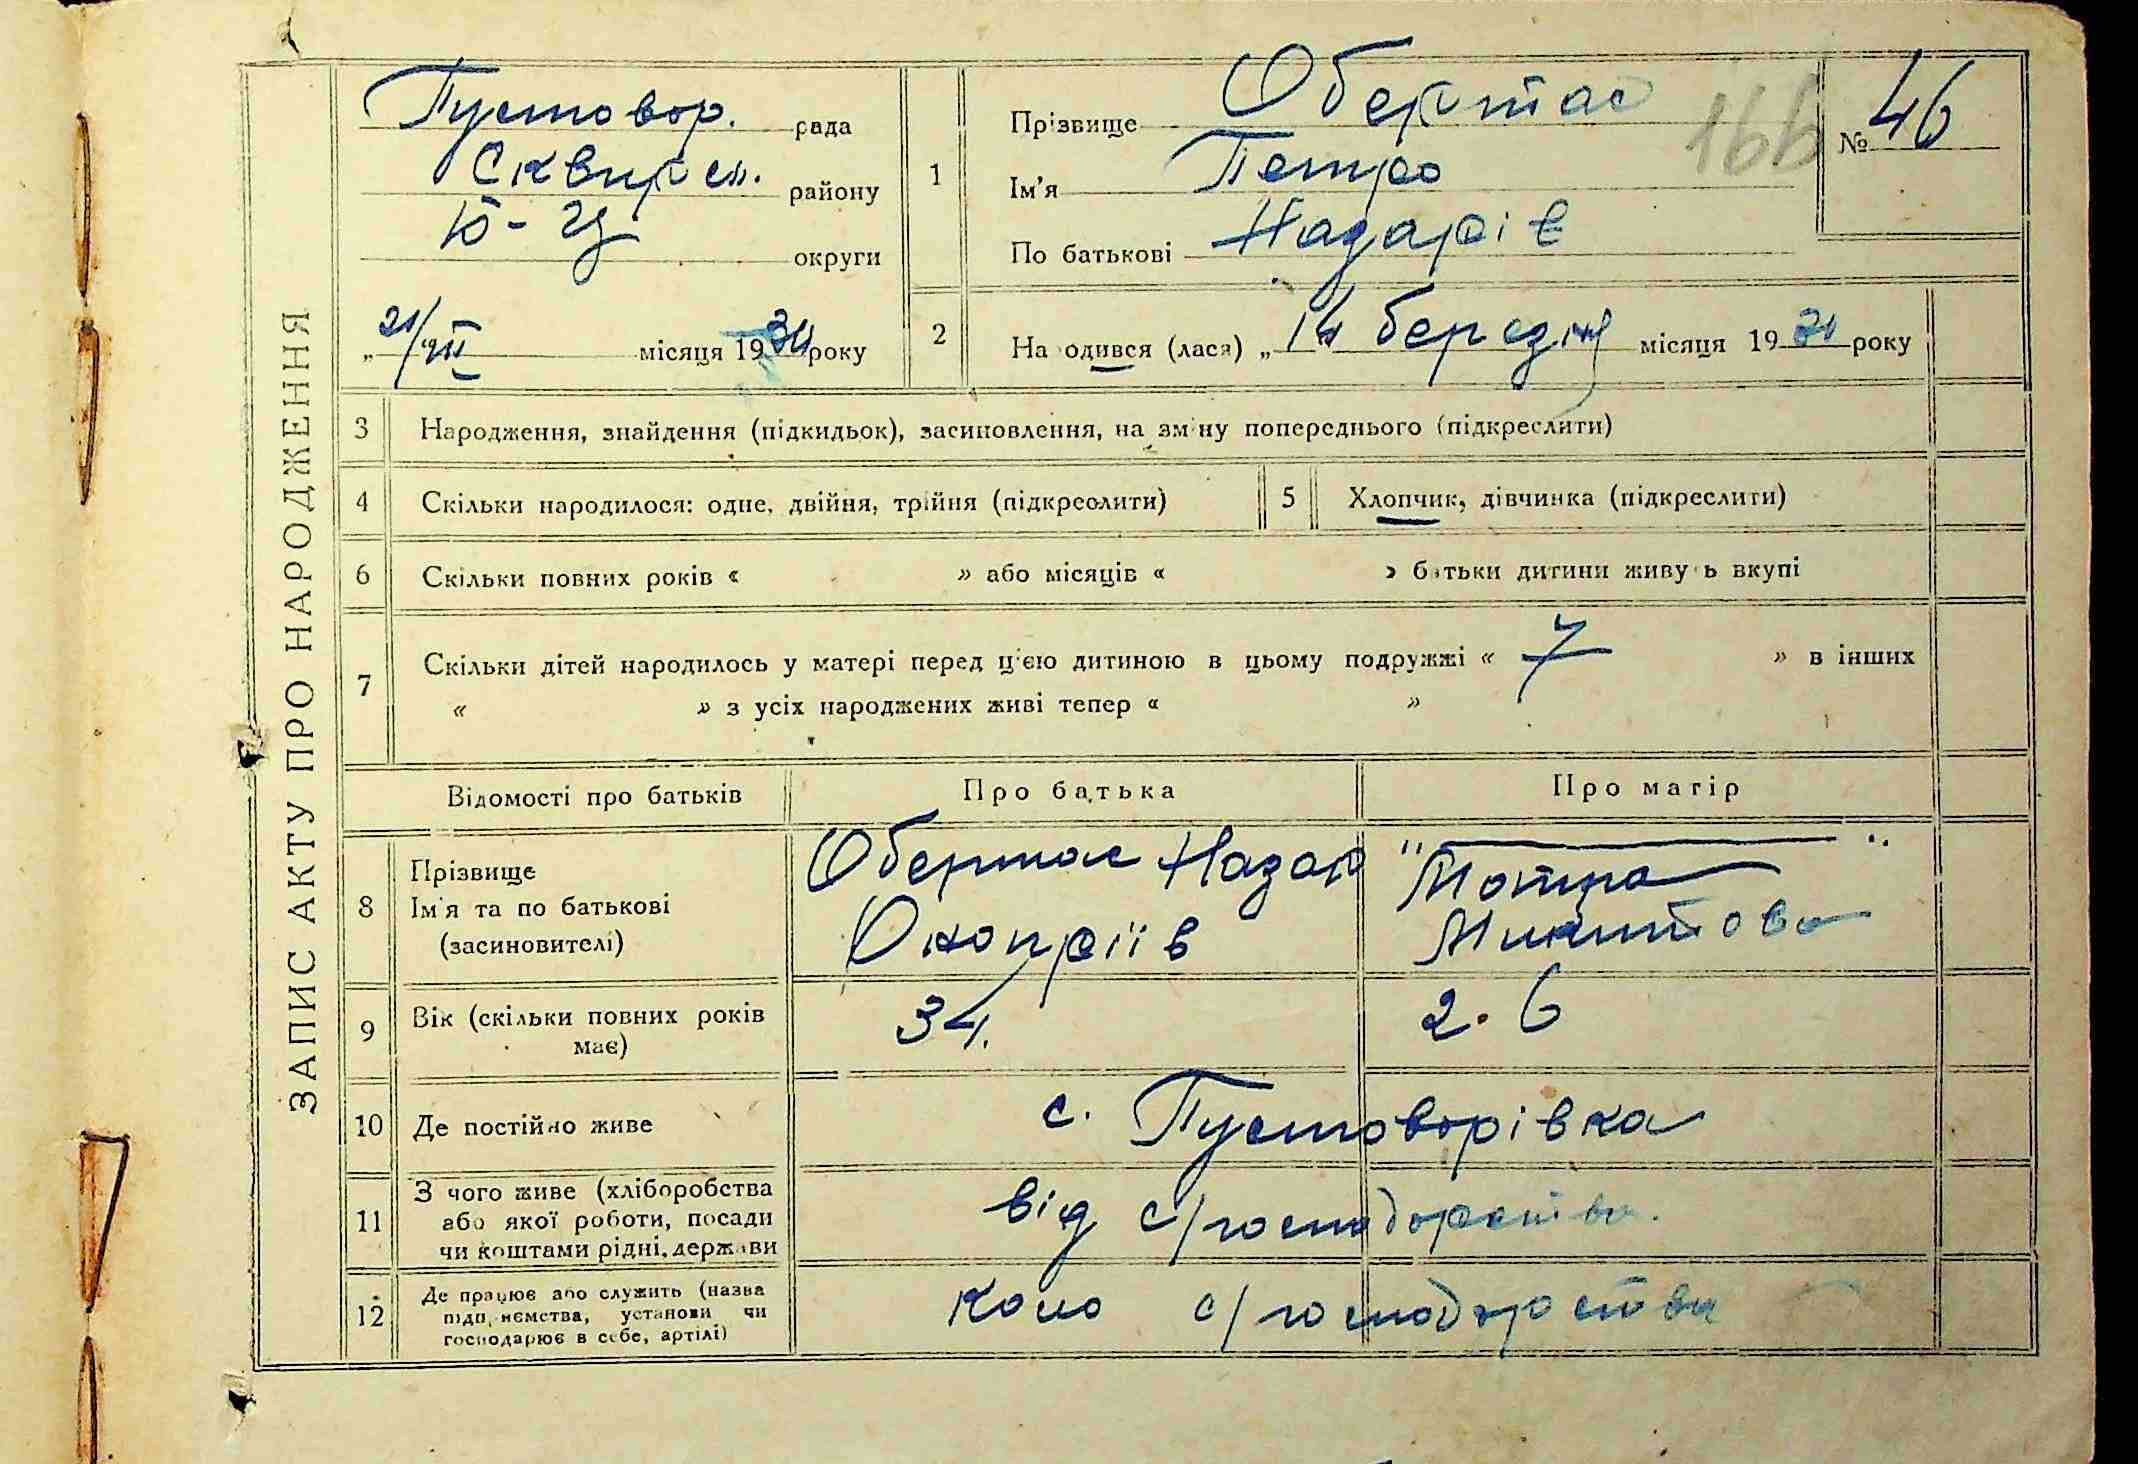 ЗАПИС АКТУ ПРО НАРОДЖЕННЯ
Пустовор. рада
Сквирсь. району
Б-Ц округи
„21/VII місяця 1934 року
1
Прізвище Обертас
Ім'я Петро
По батькові Назарів
166
№ 46
2 Народився (лася) „14 березня місяця 19 року
3 Народження, знайдення (підкидьок), засиновлення, на зміну попереднього (підкреслити)
4 Скільки народилося: одне, двійня, трійня (підкреслити)
5 Хлопчик, дівчинка (підкреслити)
6 Скільки повних років « » або місяців « » батьки дитини живуть вкупі
7 Скільки дітей народилось у матері перед цією дитиною в цьому подружжі « 7 » в інших
« » з усіх народжених живі тепер « »
Відомості про батьків Про батька Про матір
8 Прізвище
Ім'я та по батькові
(засиновителі)
Обертас Назар
Онопріїв
" "
Мотра
Микитова
9 Вік (скільки повних років
має)
34. 2.6
10 Де постійно живе с. Пустоворівка
11 З чого живе (хліборобства
або якої роботи, посади
чи коштами рідні, держави
від с/господарства.
12 Де працює або служить (назва
підприємства, установи чи
господарює в себе, артілі)
коло с/господарства